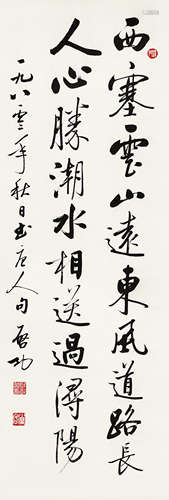 西塞雲山遠東風道路長
人心勝潮水相送過潯陽
一九八零年秋日書唐人句 启功